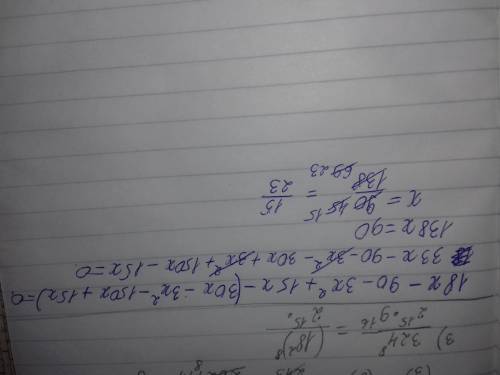 3) 324⁸ / 2¹⁵·9¹⁶ = (18²)⁸ / 2¹⁵·
18x - 90 - 3x² + 15x - (30x - 3x² - 150x + 15x) = 0
33x - 90 - 3x² - 30x + 3x² + 150x - 15x = 0
138x = 90
x = 90 45 15 / 138 69 23 = 15/23